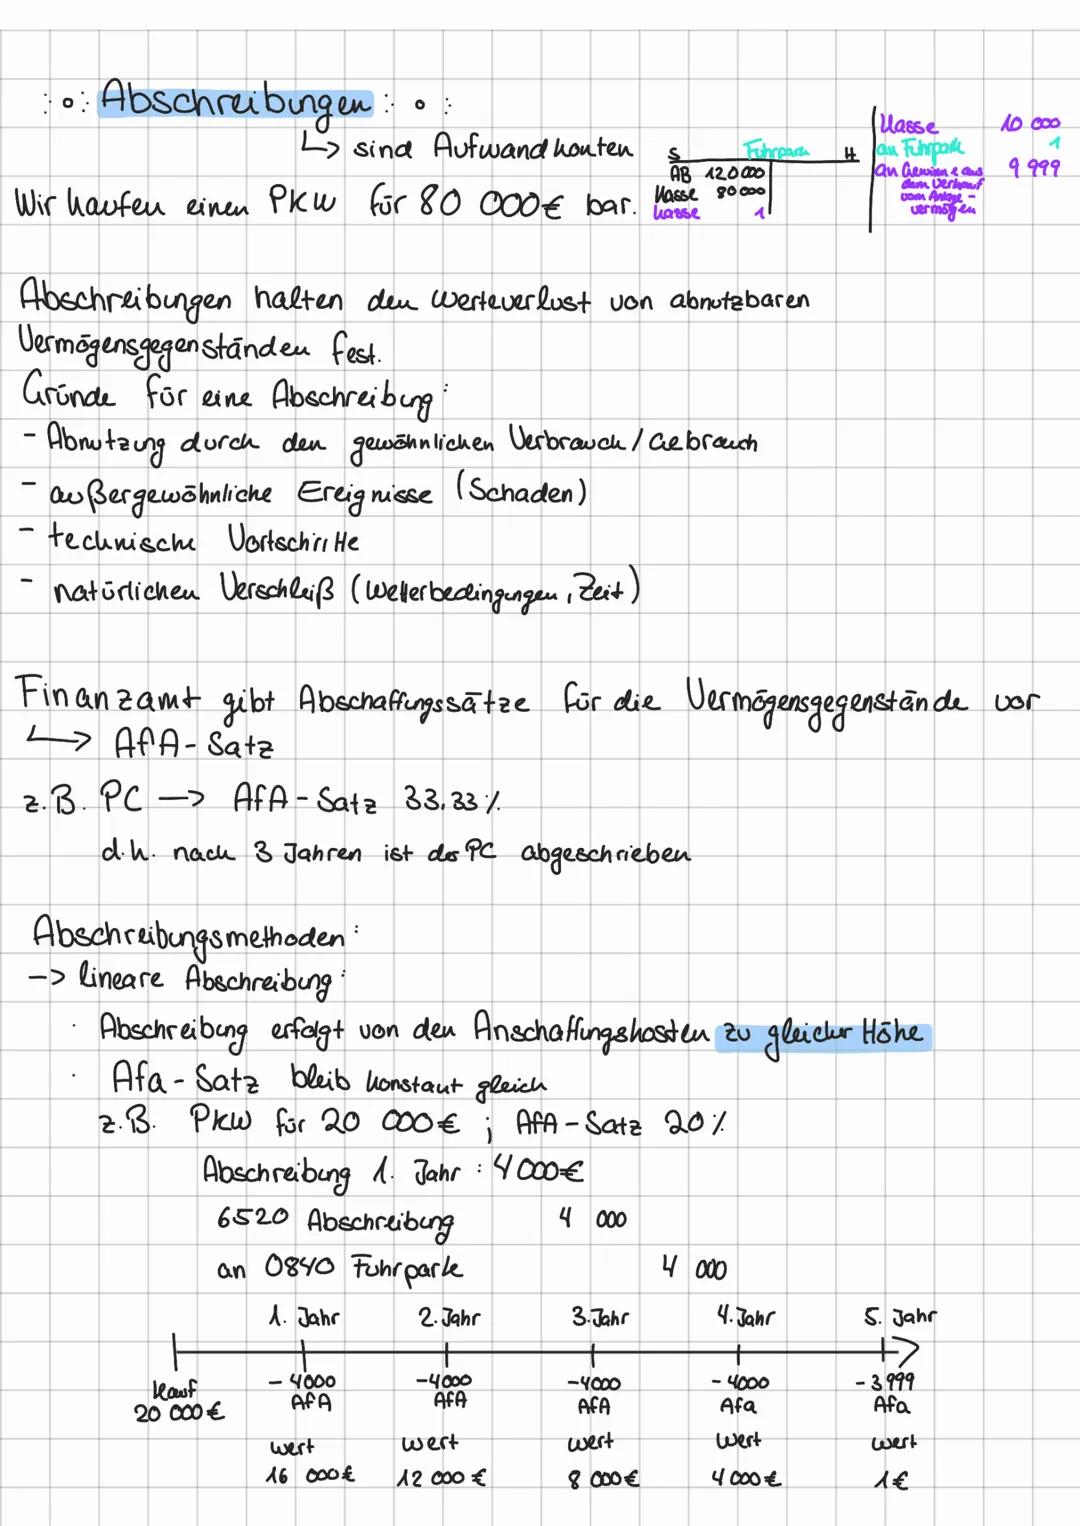 Abschreibungen
↳ sind Aufwandkonten
S Fuhrpark H
AB 120000
Kasse 80000
Kasse 1
Kasse 10 000
an Fuhrpark 1
an Gewinne aus 9 999
dem Verkauf
vom Anlage-
vermögen
Wir kaufen einen PKW für 80 000€ bar.
Abschreibungen halten den Werteverlust von abnutzbaren
Vermögensgegenständen fest.
Gründe für eine Abschreibung:
- Abnutzung durch den gewöhnlichen Verbrauch / Gebrauch
- außergewöhnliche Ereignisse (Schaden)
- technische Vortschritte
- natürlichen Verschleiß (Wetterbedingungen, Zeit)
Finanzamt gibt Abschaffungssätze für die Vermögensgegenstände vor
↳ AfA-Satz
z.B. PC → AfA-Satz 33,33%
d.h. nach 3 Jahren ist der PC abgeschrieben
Abschreibungsmethoden:
-> lineare Abschreibung:
· Abschreibung erfolgt von den Anschaffungskosten zu gleicher Höhe
· Afa-Satz bleib konstant gleich
z.B. PKW für 20 000€ ; AfA-Satz 20%
Abschreibung 1. Jahr : 4000€
6520 Abschreibung 4 000
an 0840 Fuhrpark 4 000
1. Jahr 2. Jahr 3. Jahr 4. Jahr 5. Jahr
Kauf -4000 -4000 -4000 -4000 -3999
20 000€ AfA AfA AfA Afa Afa
wert wert wert wert wert
16 000€ 12 000€ 8 000€ 4 000€ 1€